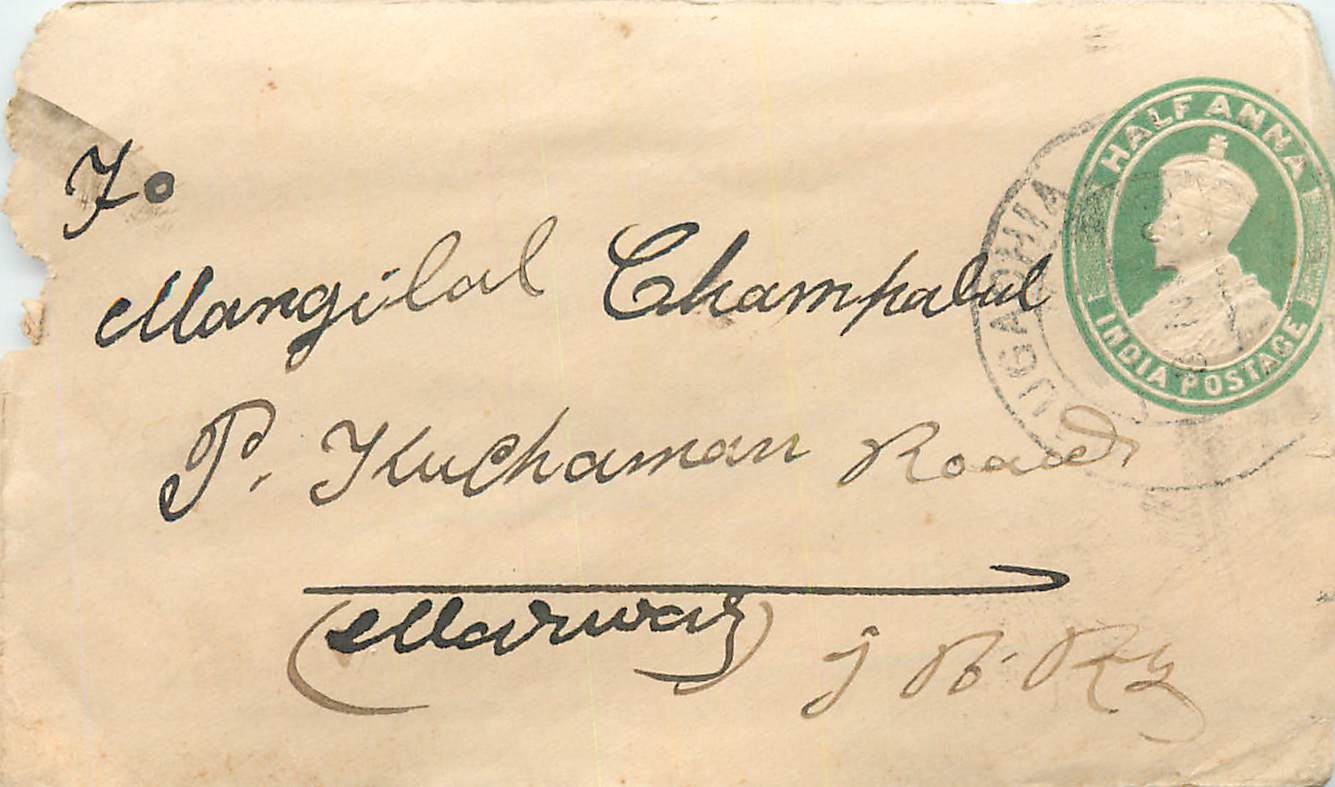 HALF ANNA
INDIA POSTAGE
To
Mangilal Champalal
P. Kuchaman Road
(Marwar)
J. B. Ry